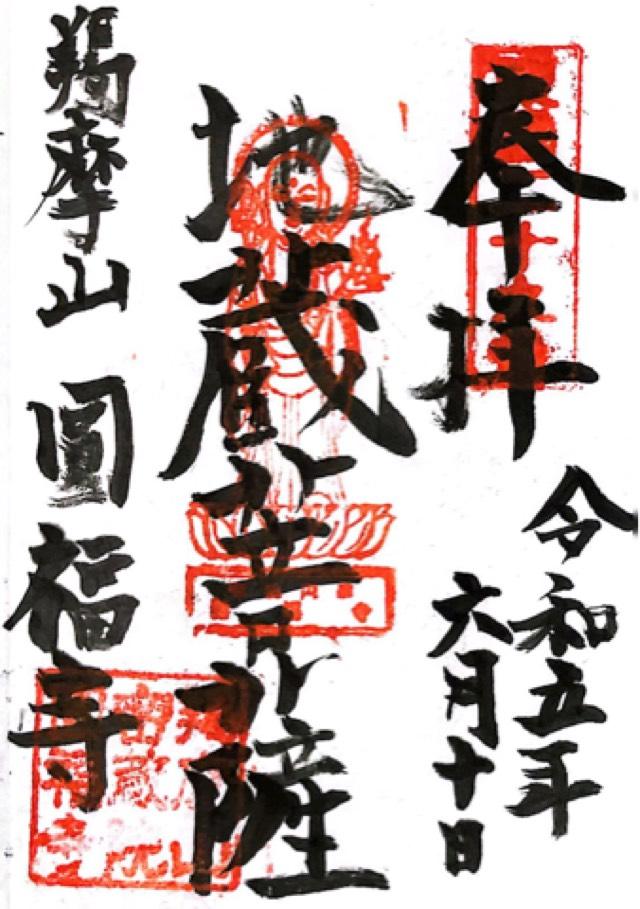 奉拝
令和五年
六月十日
地蔵菩薩
羯摩山 圓福寺